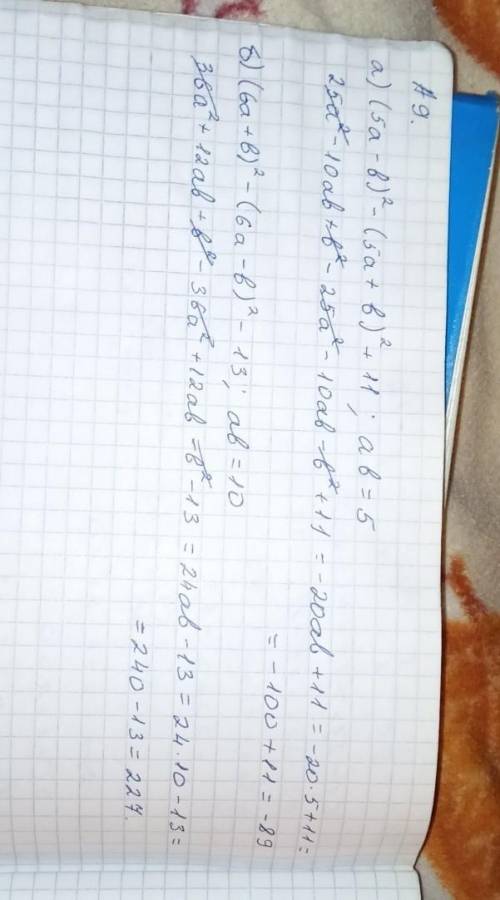 №9.
а) (5a - b)² - (5a + b)² + 11; ab = 5
25a² - 10ab + b² - 25a² - 10ab - b² + 11 = -20ab + 11 = -20·5 + 11 =
= -100 + 11 = -89
б) (6a + b)² - (6a - b)² - 13; ab = 10
36a² + 12ab + b² - 36a² + 12ab - b² - 13 = 24ab - 13 = 24·10 - 13 =
= 240 - 13 = 227.